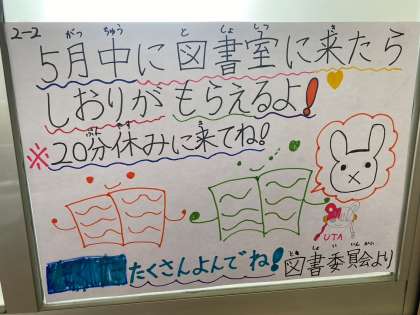 2-2
5月中に図書室に来たら
しおりがもらえるよ!
※20分休みに来てね!
UTA
たくさんよんでね!
図書委員会より